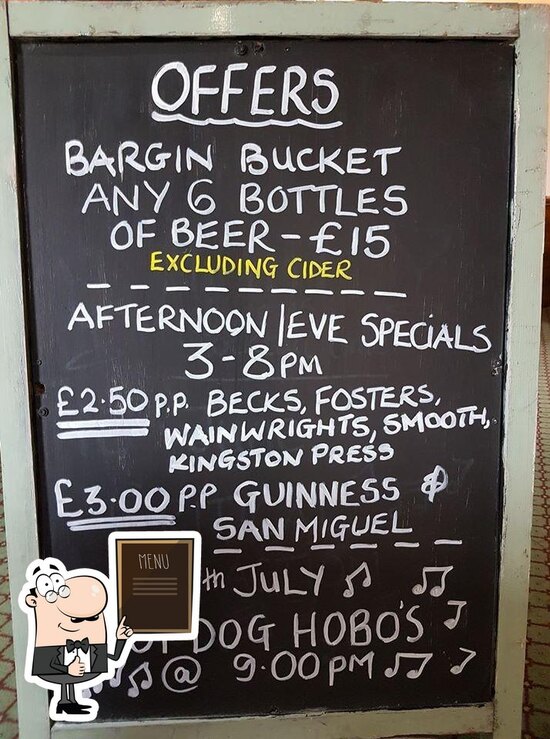 OFFERS
BARGIN BUCKET
ANY 6 BOTTLES
OF BEER - £15
EXCLUDING CIDER
AFTERNOON/EVE SPECIALS
3-8PM
£2.50 P.P. BECKS, FOSTERS,
WAINWRIGHTS, SMOOTH,
KINGSTON PRESS
£3.00 P.P GUINNESS &
SAN MIGUEL
MENU
th JULY
DOG HOBO'S
@ 9.00PM